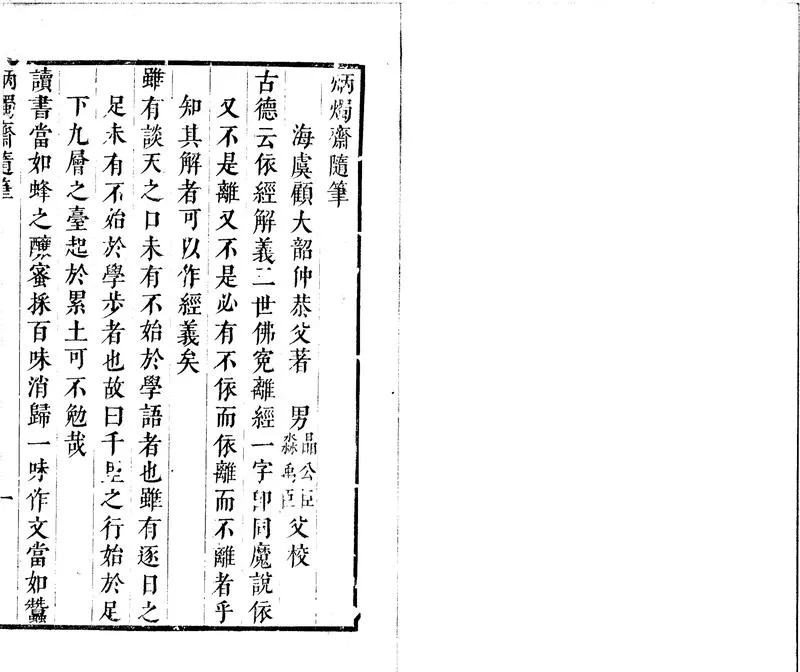 炳燭齋隨筆
海虞顧大韶仲恭父著 男晶公臣淼禹臣父校
古德云依經解義三世佛寃離經一字即同魔說依
又不是離又不是必有不依而依離而不離者乎
知其解者可以作經義矣
雖有談天之口未有不始於學語者也雖有逐日之
足未有不始於學步者也故曰千里之行始於足
下九層之臺起於累土可不勉哉
讀書當如蜂之釀蜜採百味消歸一味作文當如蠶
炳燭齋隨筆 一